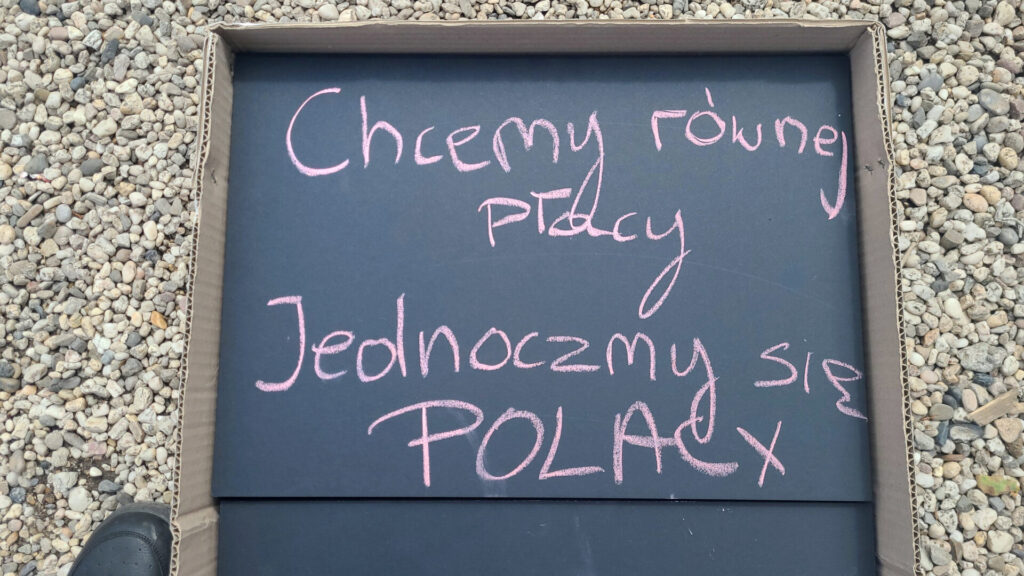 Chcemy równej
płacy
Jednoczmy się
POLACY